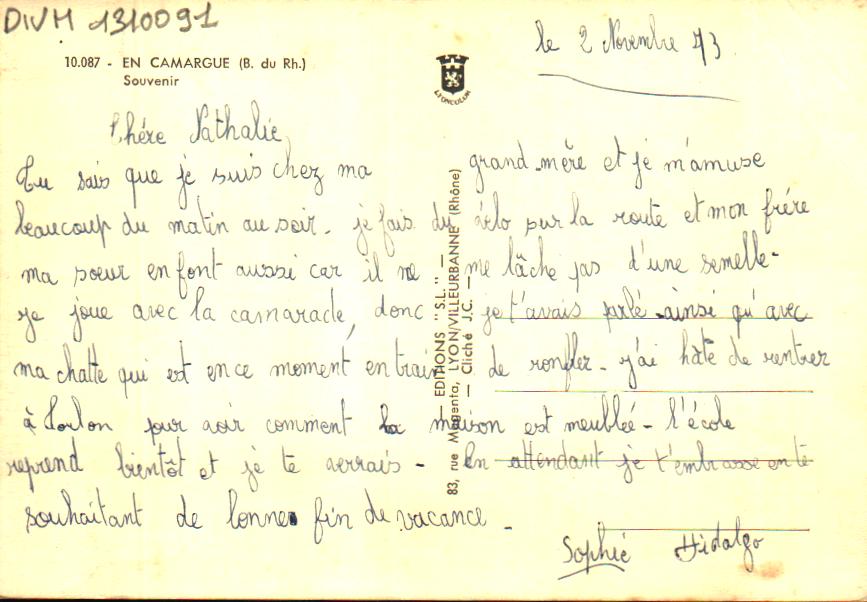 DIVM 1310091
10.087 - EN CAMARGUE (B. du Rh.)
Souvenir
LYONCOLOR
le 2 Novembre 73
Chére Nathalie
Tu sais que je suis chez ma grand-mère et je m'amuse
beaucoup du matin au soir. je fais du vélo sur la route et mon frére
ma soeur en font aussi car il ne me lâche pas d'une semelle-
je joue avec la camarade, donc je t'avais parlé ainsi qu'avec
ma chatte qui est en ce moment en train de ronfler. j'ai hâte de rentrer
à Toulon pour voir comment la maison est meubleé - L'école
reprend bientôt et je te verrais - En attendant je t'embrasse en te
souhaitant de bonne fin de vacance -
Sophie Hidalgo
— EDITIONS "S.L." —
83, rue Magenta, LYON/VILLEURBANNE (Rhône)
— Cliché J.C. —